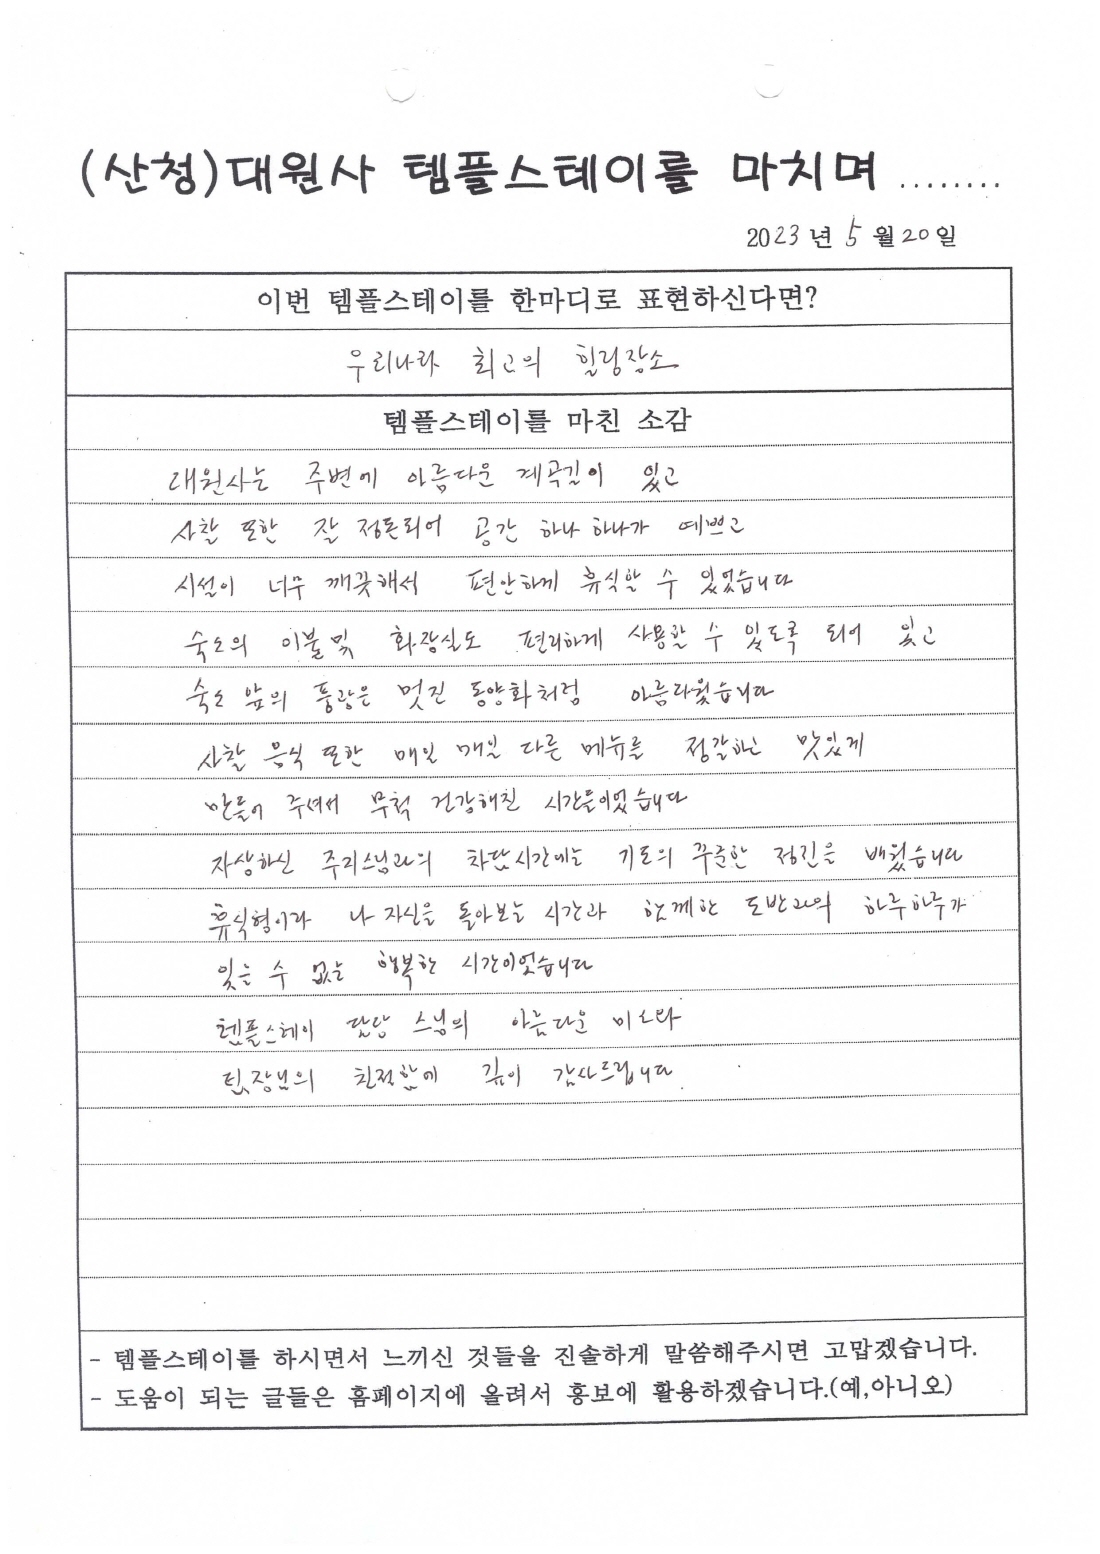 (산청)대원사 템플스테이를 마치며 ........
2023년 5월 20일
이번 템플스테이를 한마디로 표현하신다면?
우리나라 최고의 힐링장소
템플스테이를 마친 소감
대원사는 주변에 아름다운 계곡길이 있고
사찰 또한 잘 정돈되어 공간 하나 하나가 예쁘고
시설이 너무 깨끗해서 편안하게 휴식할 수 있었습니다
숙소의 이불 및 화장실도 편리하게 사용할 수 있도록 되어 있고
숙소 앞의 풍광은 멋진 동양화처럼 아름다웠습니다
사찰 음식 또한 매일 매일 다른 메뉴를 정갈하고 맛있게
만들어 주셔서 무척 건강해진 시간들이었습니다
자상하신 주지스님과의 차담시간에는 기도의 꾸준한 정진을 배웠습니다
휴식형이라 나 자신을 돌아보는 시간과 함께한 도반과의 하루하루가
잊을 수 없는 행복한 시간이었습니다
템플스테이 담당 스님의 아름다운 미소와
팀장님의 친절함에 깊이 감사드립니다.
- 템플스테이를 하시면서 느끼신 것들을 진솔하게 말씀해주시면 고맙겠습니다.
- 도움이 되는 글들은 홈페이지에 올려서 홍보에 활용하겠습니다.(예,아니오)